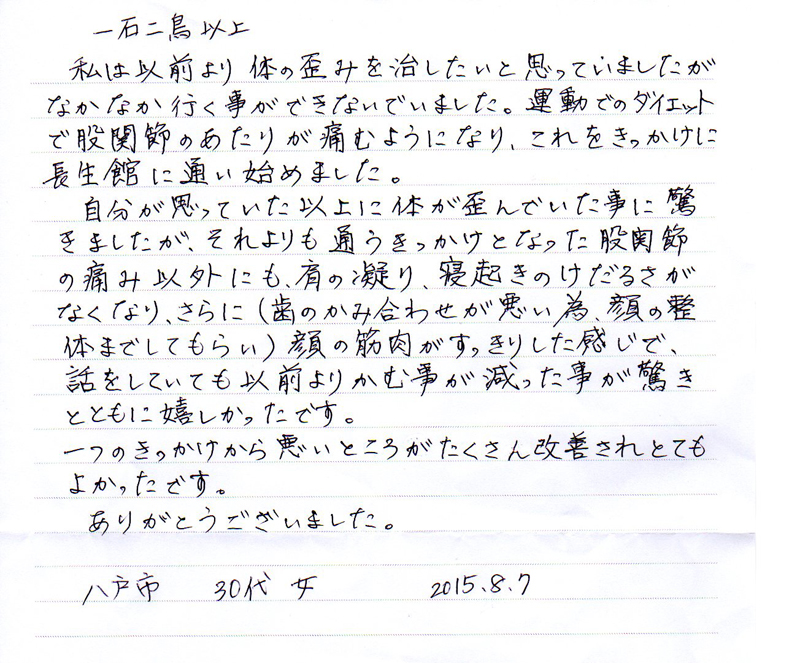 一石二鳥以上
私は以前より体の歪みを治したいと思っていましたが
なかなか行く事ができないでいました。運動でのダイエット
で股関節のあたりが痛むようになり、これをきっかけに
長生館に通い始めました。
自分が思っていた以上に体が歪んでいた事に驚
きましたが、それよりも通うきっかけとなった股関節
の痛み以外にも、肩の凝り、寝起きのけだるさが
なくなり、さらに(歯のかみ合わせが悪い為、顔の整
体までしてもらい)顔の筋肉がすっきりした感じで、
話をしていても以前よりかむ事が減った事が驚き
とともに嬉しかったです。
一つのきっかけから悪いところがたくさん改善されとても
よかったです。
ありがとうございました。
八戸市 30代 女 2015.8.7